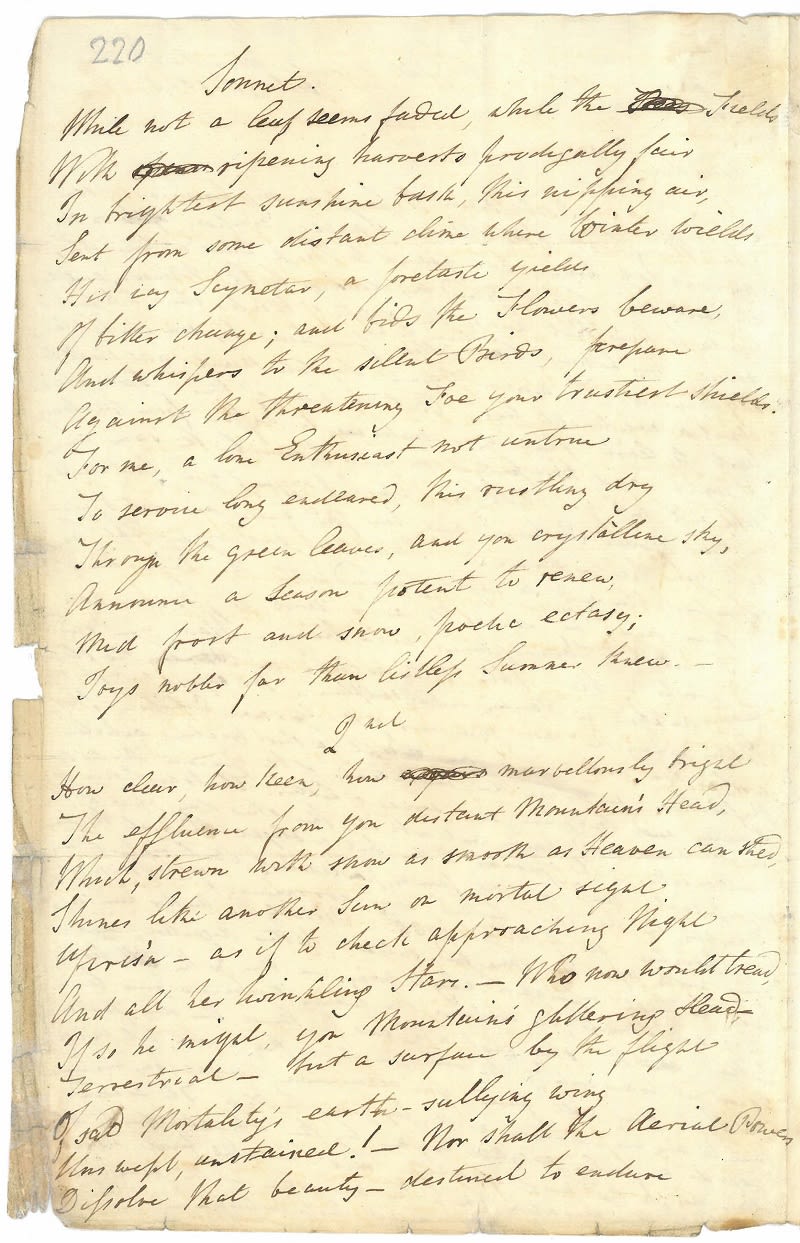 220
Sonnet.
While not a leaf seems faded, while the Fields
With ripening harvests prodigally fair
In brightest sunshine bask, this nipping air,
Sent from some distant clime where Winter wields
His icy Scymetar, a foretaste yields
Of bitter change; and bids the Flowers beware,
And whispers to the silent Birds, prepare
Against the threatening Foe your trustiest shields.
For me, a lone Enthusiast not untrue
To service long endeared, this rustling dry
Through the green leaves, and yon crystalline sky,
Announce a Season potent to renew,
Mid frost and snow, poetic ectasy;
Joys nobler far than listless Summer knew. —
2nd
How clear, how keen, how marvellously bright
The effluence from yon distant Mountain's Head,
Which, strewn with snow as smooth as Heaven can shed,
Shines like another Sun on mortal sight
Upris'n — as if to check approaching Night
And all her twinkling Stars. — Who now would tread,
If so he might, yon Mountain's glittering Head —
Terrestrial — but a surface by the flight
Of sad Mortality's earth-sullying wing
Unswept, unstained! — Nor shall the Aerial Powers
Dissolve that beauty — destined to endure